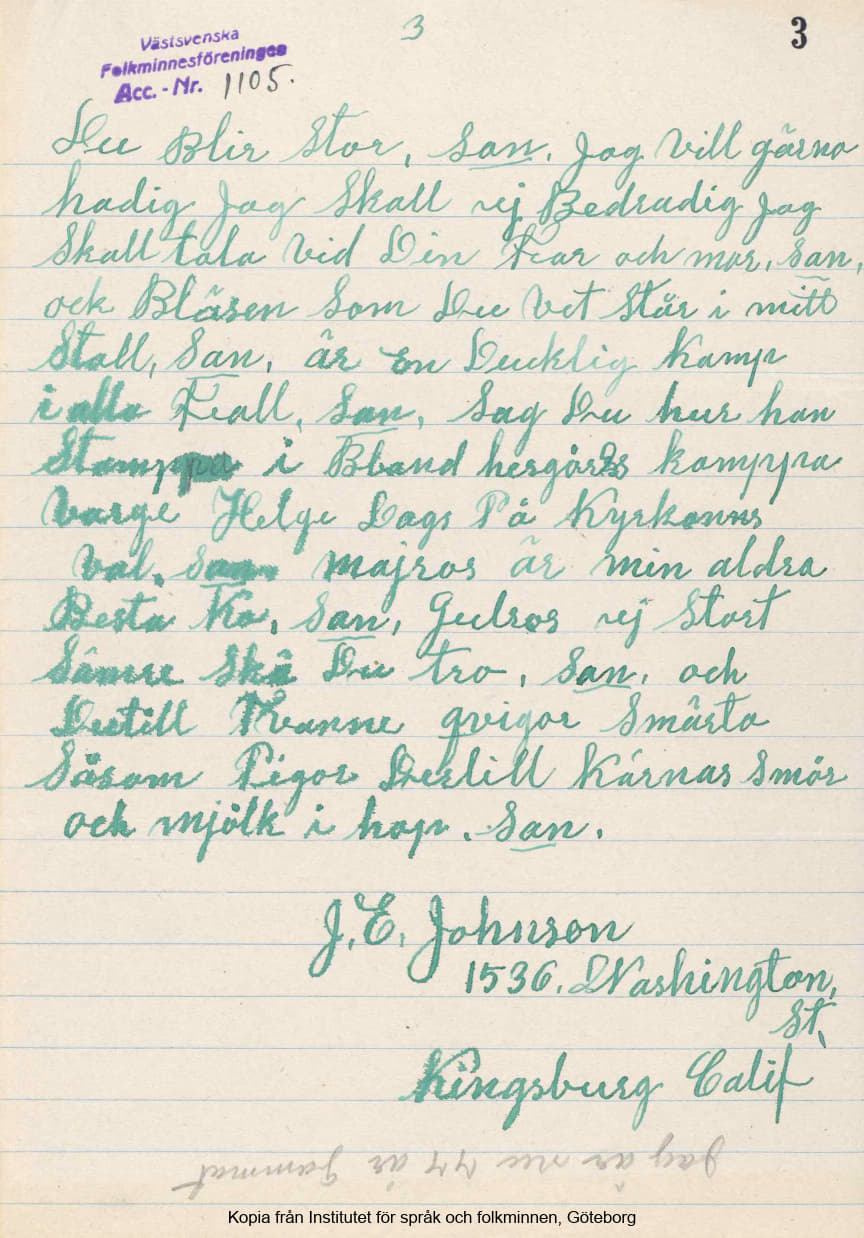 Västsvenska
Folkminnesföreningen
Acc.-Nr. 1105.
3
3
Du Blir Stor, San. Jag Vill gärna
hadig Jag Skall ej Bedradig Jag
Skall tala Vid Din Far och mor, San,
ock Bläsen Som Du Vet Står i mitt
Stall, San, är En Ducklig Kamp
i alla Fall, San, Sag Du hur han
Stamppa i Bland hergårds kamppra
Varge Helge Dags På Kyrkanns
Val. San. majros är min aldra
Besta Ko, San, Gulros ej Stort
Sämre Ska Du tro, San, och
Dertill Tvanne qvigor Smärta
Såsom Pigor Dertill Kärnas Smör
och mjölk i hop. San.
J. E. Johnson
1536. Washington,
St.
Kingsburg Calif
Jag är nu 77 år Gammal
Kopia från Institutet för språk och folkminnen, Göteborg